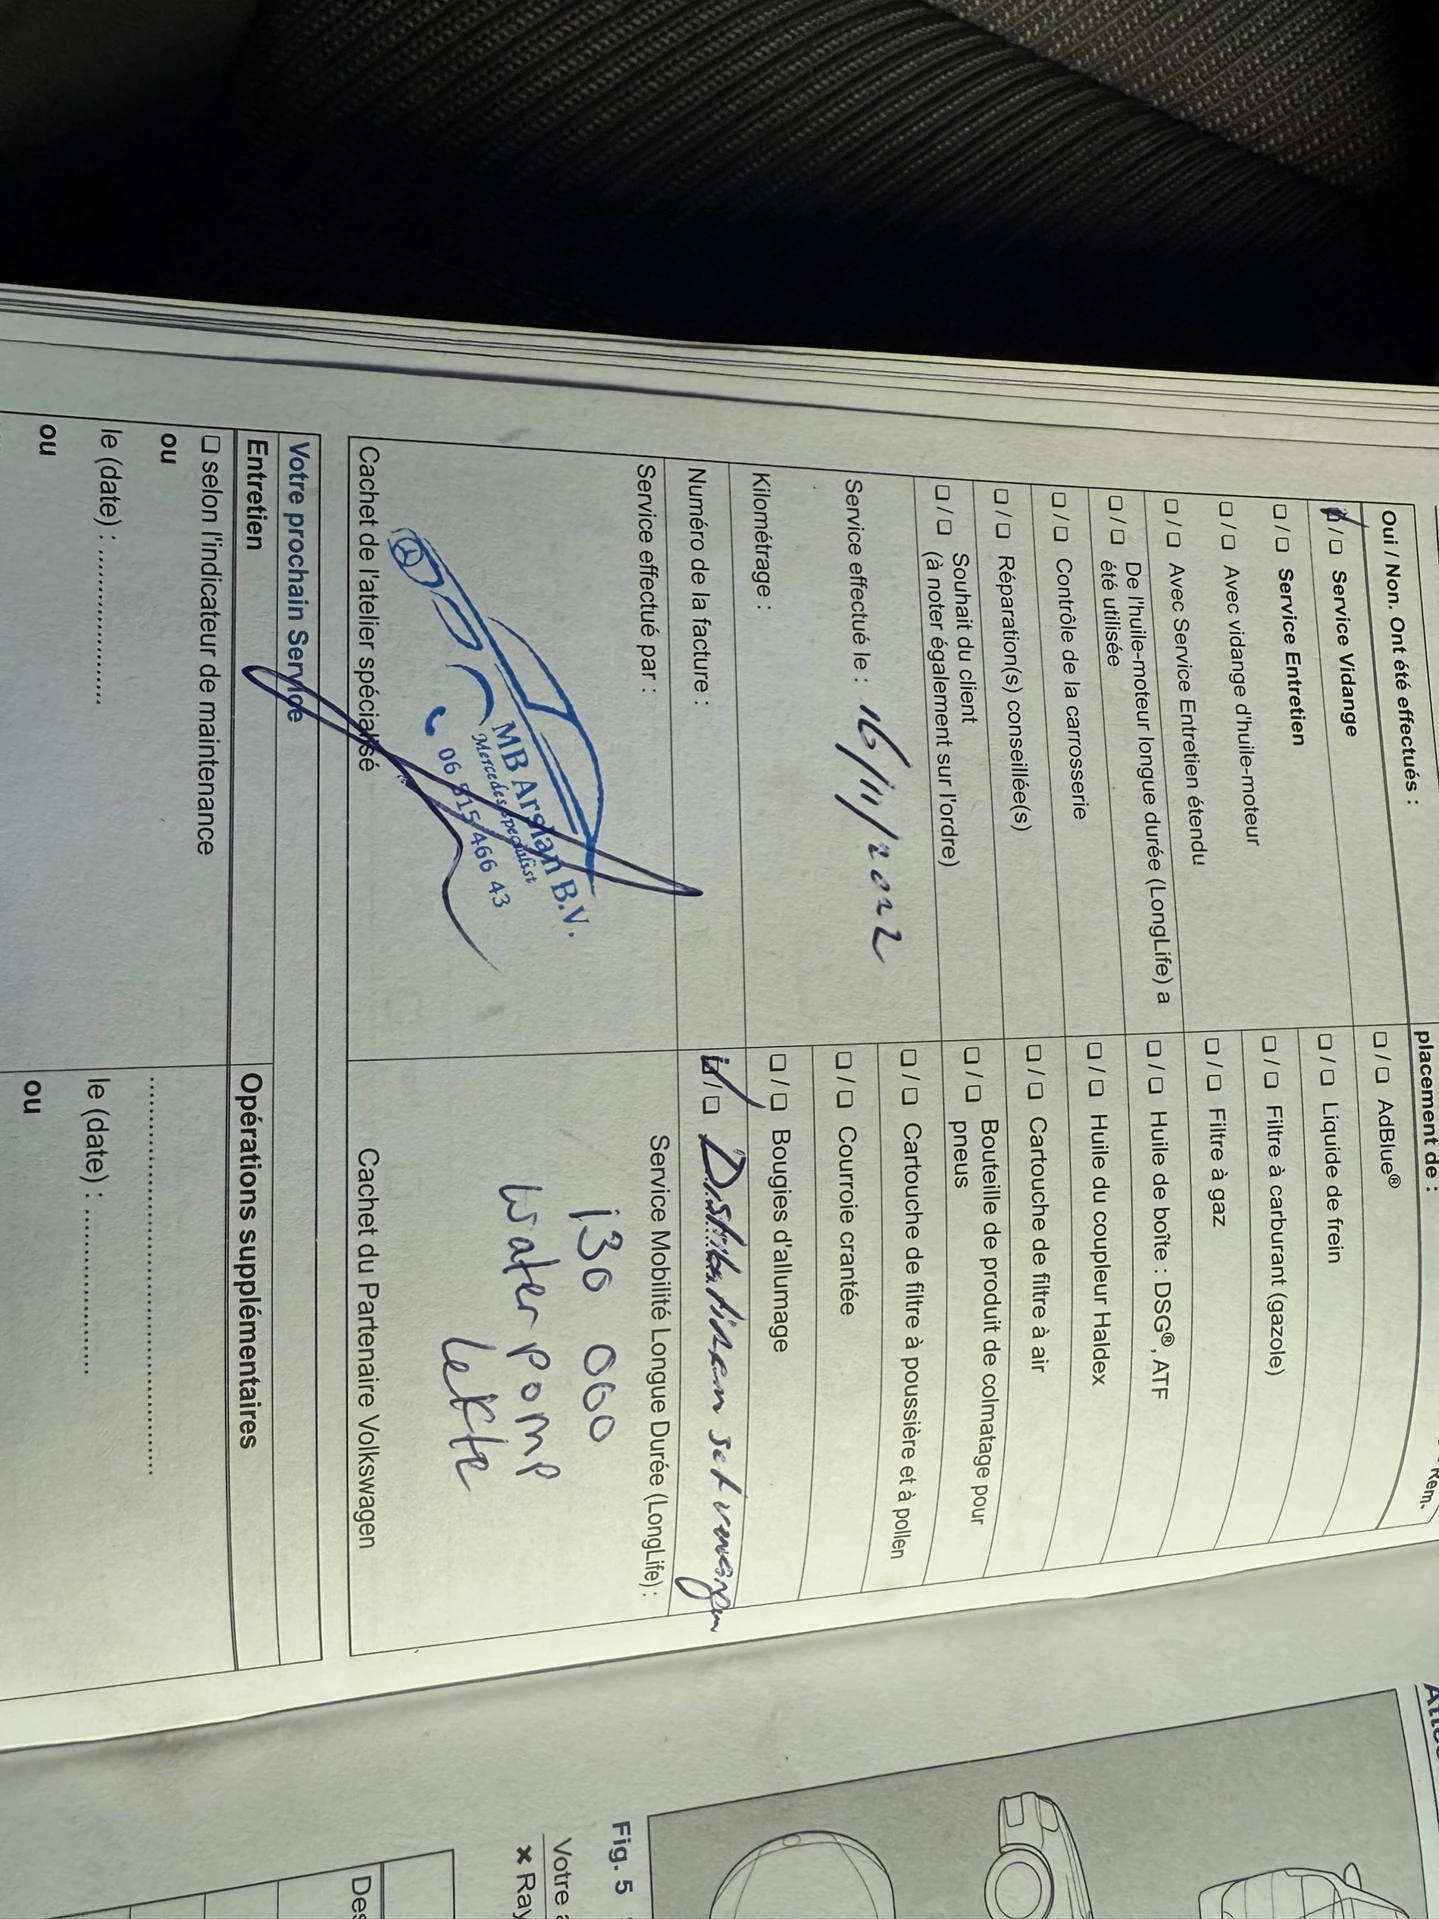 Oui / Non. Ont été effectués :
☑ / ☐ Service Vidange
☐ / ☐ Service Entretien
☐ / ☐ Avec vidange d'huile-moteur
☐ / ☐ Avec Service Entretien étendu
☐ / ☐ De l'huile-moteur longue durée (LongLife) a
été utilisée
☐ / ☐ Contrôle de la carrosserie
☐ / ☐ Réparation(s) conseillée(s)
☐ / ☐ Souhait du client
(à noter également sur l'ordre)
Service effectué le : 16/11/2022
Kilométrage :
Numéro de la facture :
Service effectué par :
MB Arslan B.V.
Mercedes specialist
06 515 466 43
Cachet de l'atelier spécialisé
placement de :
Rem.
☐ / ☐ AdBlue®
☐ / ☐ Liquide de frein
☐ / ☐ Filtre à carburant (gazole)
☐ / ☐ Filtre à gaz
☐ / ☐ Huile de boîte : DSG®, ATF
☐ / ☐ Huile du coupleur Haldex
☐ / ☐ Cartouche de filtre à air
☐ / ☐ Bouteille de produit de colmatage pour
pneus
☐ / ☐ Cartouche de filtre à poussière et à pollen
☐ / ☐ Courroie crantée
☐ / ☐ Bougies d'allumage
☑ / ☐ Distributieriem set
Service Mobilité Longue Durée (LongLife) :
130 000
waterpomp
lekte
Cachet du Partenaire Volkswagen
Votre prochain Service
Entretien
☐ selon l'indicateur de maintenance
ou
le (date) : ....................
ou
Opérations supplémentaires
........................................
le (date) : ....................
ou
Fig. 5
Votre
× Ray
Des